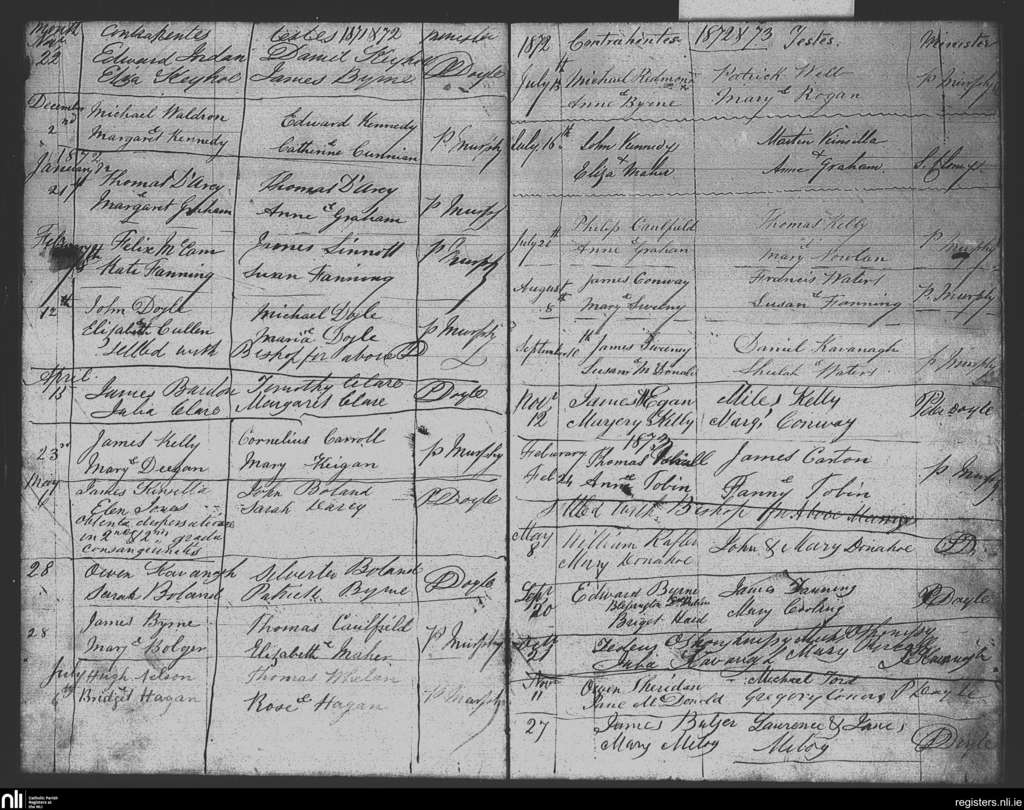 Month Contrahentes testes 1871 & 72 Minister
Nov
22 Edward Jordan Daniel Keghoe
Eliza Keghoe James Byrne PDoyle
December
2nd Michael Waldron Edward Kennedy
Margaret Kennedy Catherine P Murphy
1872
January
21st Thomas D'Arcy Thomas D'Arcy
Margaret Graham Anne Graham P Murphy
February
Felix McCam James Sinnott P Murphy
Kate Fanning Susan Fanning
12th John Doyle Michael Doyle
Elizabeth Cullen Maria Doyle P Murphy
Settled with Bishop for above PD
April
13 James Bardon Timothy Clare PDoyle
Julia Clare Margaret Clare
23rd James Kelly Cornelius Carroll
Mary Deegan Mary Keigan P Murphy
May
6 James Kinsella John Boland PDoyle
Elen Sarah Darcy
Obtenta dispensatione
in 2nd & 2nd gradu
consanguinitis
28 Owen Kavanagh Silvester Boland
Sarah Boland Patrick Byrne PDoyle
28 James Byrne Thomas Caulfield P Murphy
Mary Bolger Elizabeth Maher
July
6th Hugh Nelson Thomas Whelan
Bridget Hagan Rose Hagan P Murphy
1872 Contrahentes 1872 & 73 Testes Minister
July 13th Michael Redmond Patrick Will P Murphy
Anne Byrne Mary Rogan
July 16th John Kennedy Martin Kinsella
Eliza Maher Anne Graham
July 20th Philip Caulfield Thomas Kelly
Anne Graham Mary Nowlan P Murphy
August
8th James Conway Francis Waters
Mary Sweeny Susan Fanning P. Murphy
September 10th James Sweeny Daniel Kavanagh
Susan McDonald Sheelah Waters P Murphy
Nov
12 James Egan Miles Kelly
Margery Kelly Marg Conway Peter Doyle
1873
February
Feb 24 Thomas James Caston
Anne Tobin Fanny Tobin P Murphy
Settled with Bishop for Above Marriages
May
8 William John & Mary Donahoe PD
Mary Donahoe
Sept
20 Edward Byrne James Dunning
Briget Haid Mary Cooling PDoyle
Julia Kavanagh & Mary Kavanagh
Nov
11 Owen Sheridan Michael Ford
Jane McDonald Gregory Connors P Doyle
27 James Bulger Lawrence & Jane
Mary Miloy Miloy PDoyle
nli Catholic Parish
Registers at
the NLI
registers.nli.ie